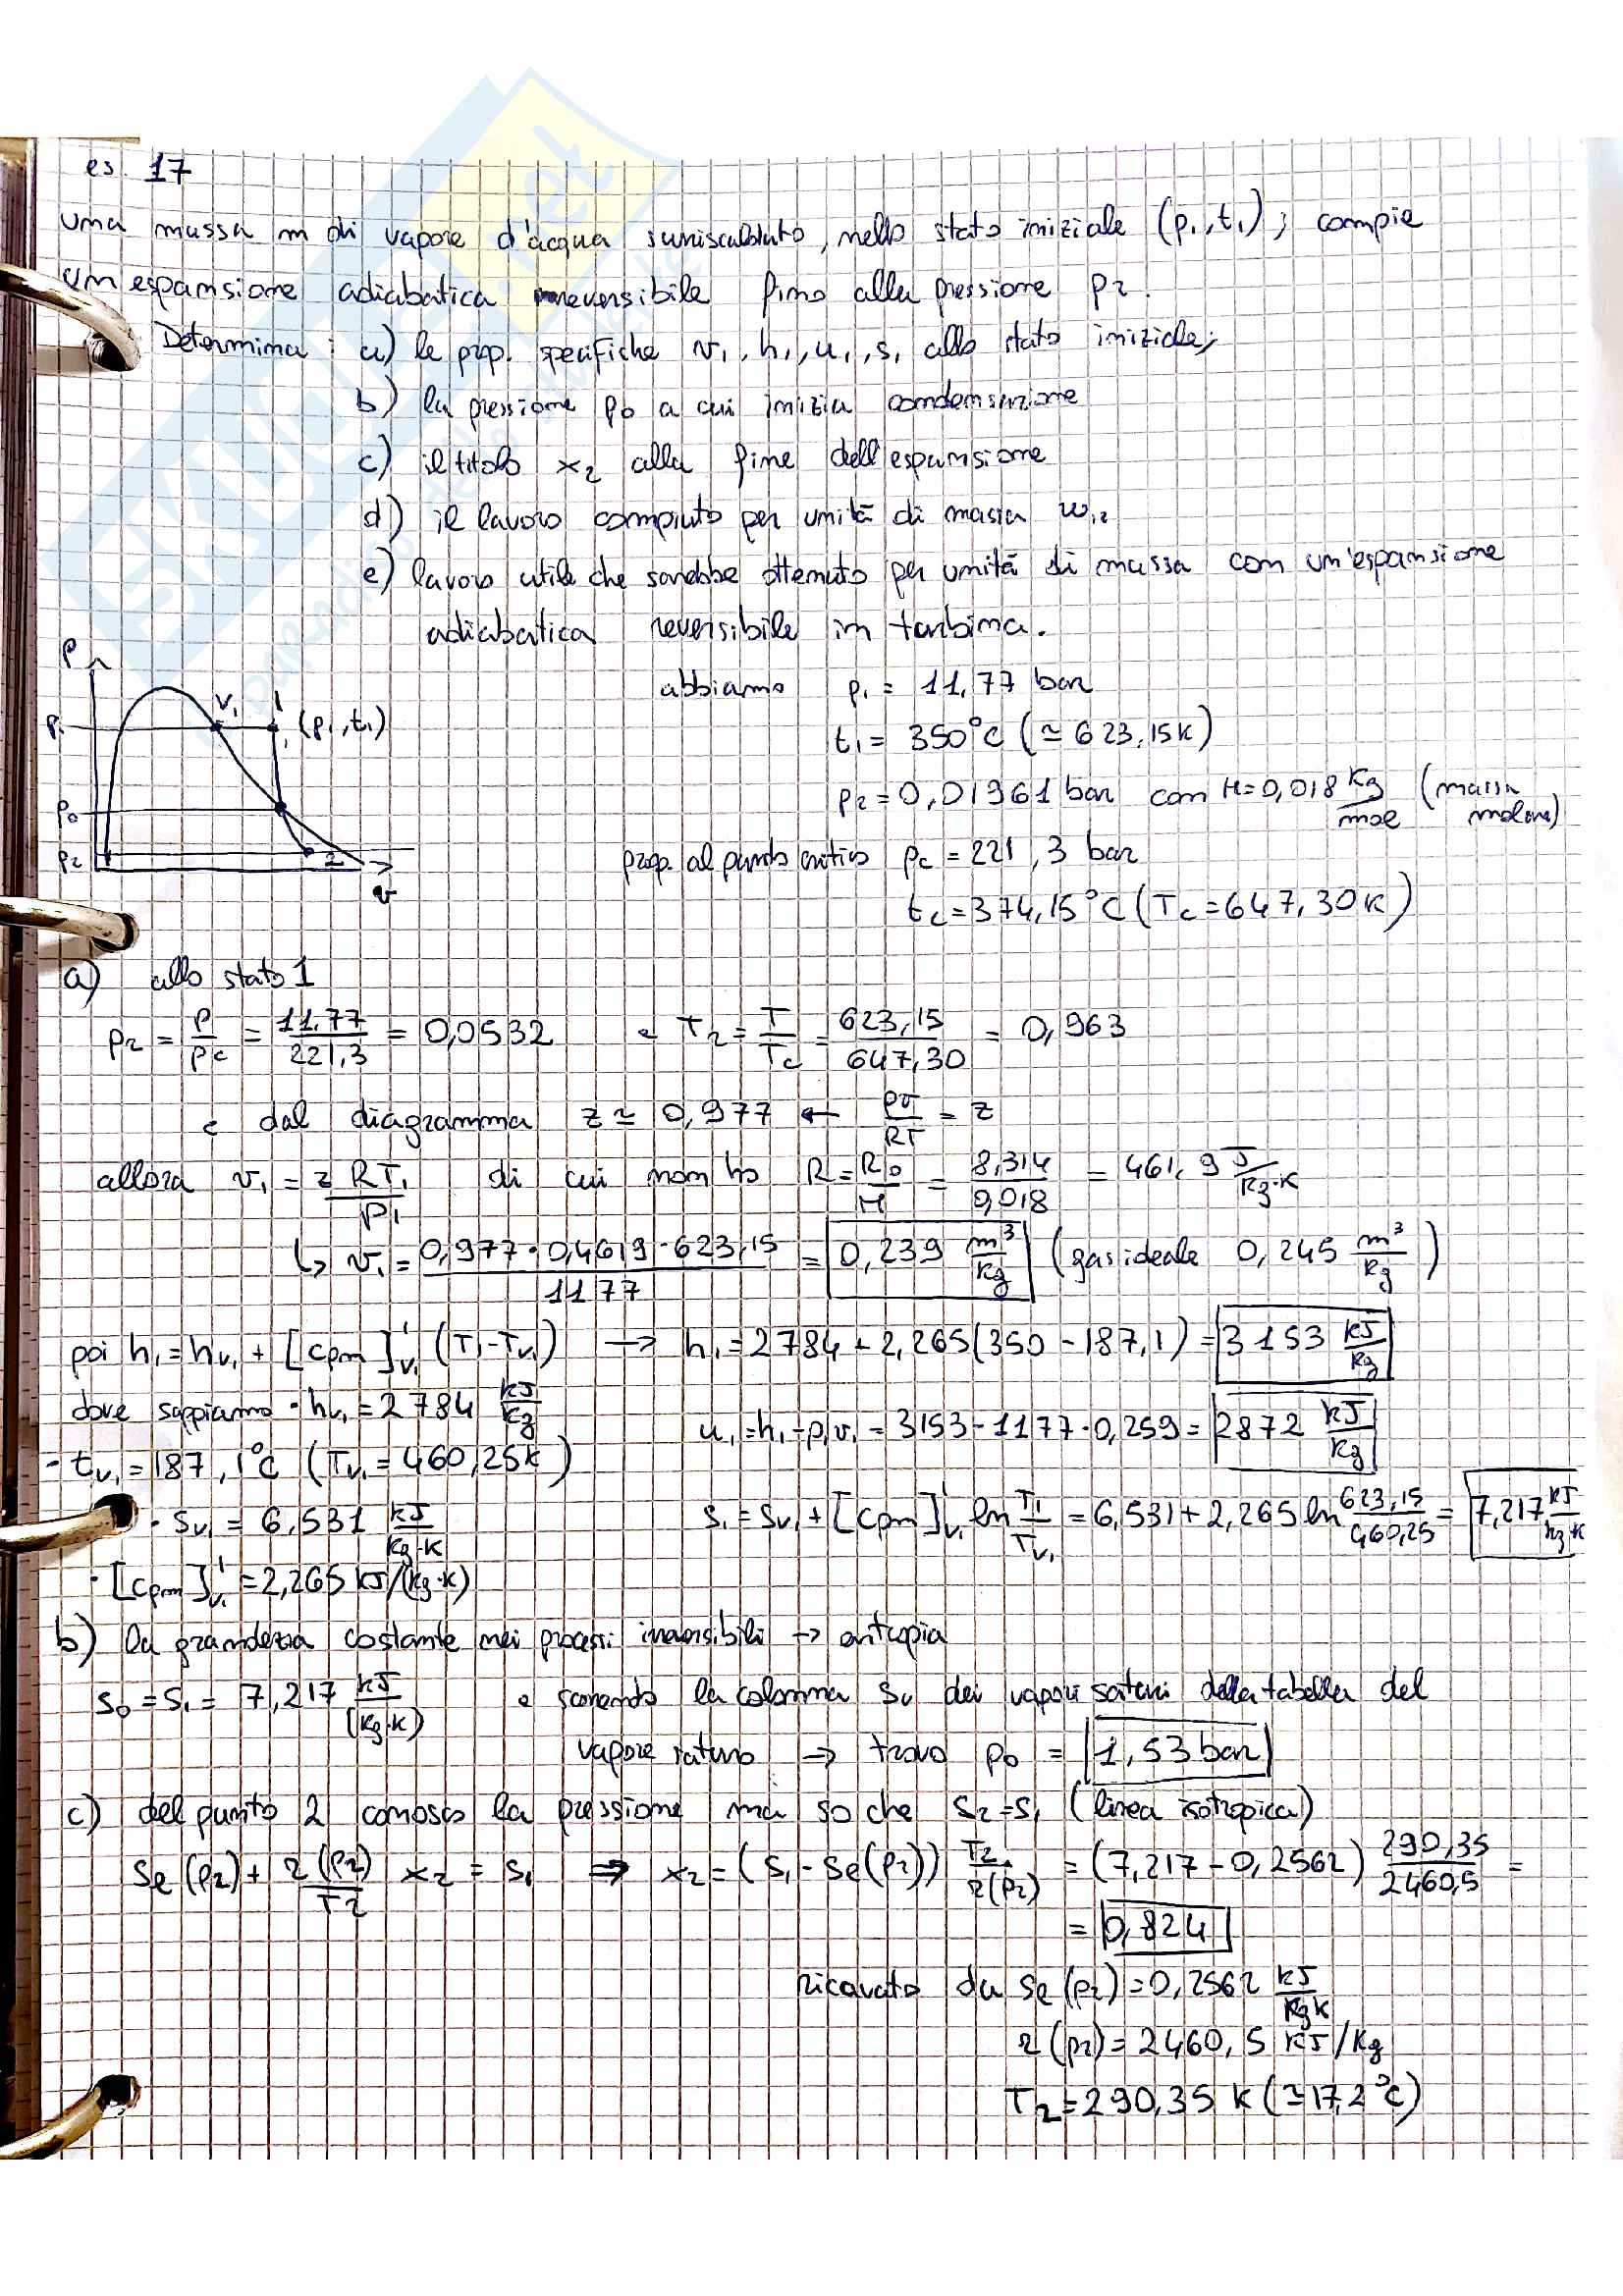 es. 17
una massa m di vapore d'acqua surriscaldato, nello stato iniziale (p₁, t₁), compie
un espansione adiabatica reversibile fino alla pressione p₂.
Determina: a) le prop. specifiche v₁, h₁, u₁, s₁ allo stato iniziale;
b) la pressione p₀ a cui inizia condensazione
c) il titolo x₂ alla fine dell'espansione
d) il lavoro compiuto per unità di massa w₁₂
e) lavoro utile che sarebbe ottenuto per unità di massa con un'espansione
adiabatica reversibile in turbina.
P
V₁ 1
p₁ (p₁, t₁)
p₀
p₂ 2
v
abbiamo p₁ = 11,77 bar
t₁ = 350°C (≃ 623,15K)
p₂ = 0,01961 bar con M = 0,018 Kg/mol (massa molare)
prop. al punto critico pc = 221,3 bar
tc = 374,15°C (Tc = 647,30K)
a) allo stato 1
pr = p/pc = 11,77/221,3 = 0,0532 e Tr = T/Tc = 623,15/647,30 = 0,963
e dal diagramma z ≃ 0,977 ← pv/RT = z
allora v₁ = z RT₁/p₁ di cui non ho R = R₀/M = 8,314/0,018 = 461,9 J/Kg·K
↳ v₁ = 0,977·0,4619·623,15/1177 = 0,239 m³/kg (gas ideale 0,245 m³/kg)
poi h₁ = hv₁ + [cpm]¹v₁ (T₁-Tv₁) → h₁ = 2784 + 2,265(350 - 187,1) = 3153 kJ/kg
dove sappiamo · hv₁ = 2784 kJ/kg
u₁ = h₁ - p₁v₁ = 3153 - 1177·0,259 = 2872 kJ/kg
- tv₁ = 187,1°C (Tv₁ = 460,25K)
· sv₁ = 6,531 kJ/kg·K
s₁ = sv₁ + [cpm]¹v₁ ln T₁/Tv₁ = 6,531 + 2,265 ln 623,15/460,25 = 7,217 kJ/kg·K
· [cpm]¹v₁ = 2,265 kJ/(kg·K)
b) la grandezza costante nei processi irreversibili → entropia
s₀ = s₁ = 7,217 kJ/(kg·K) e scorrendo la colonna sv dei vapori saturi della tabella del
vapore saturo → trovo p₀ = 1,53 bar
c) del punto 2 conosco la pressione ma so che s₂ = s₁ (linea isotropica)
se(p₂) + r(p₂)/T₂ x₂ = s₁ ⇒ x₂ = (s₁ - se(p₂)) T₂/r(p₂) = (7,217 - 0,2562) 290,35/2460,5 =
= 0,824
ricavato da se(p₂) = 0,2562 kJ/kgK
r(p₂) = 2460,5 KJ/Kg
T₂ = 290,35 K (≃ 17,2°C)